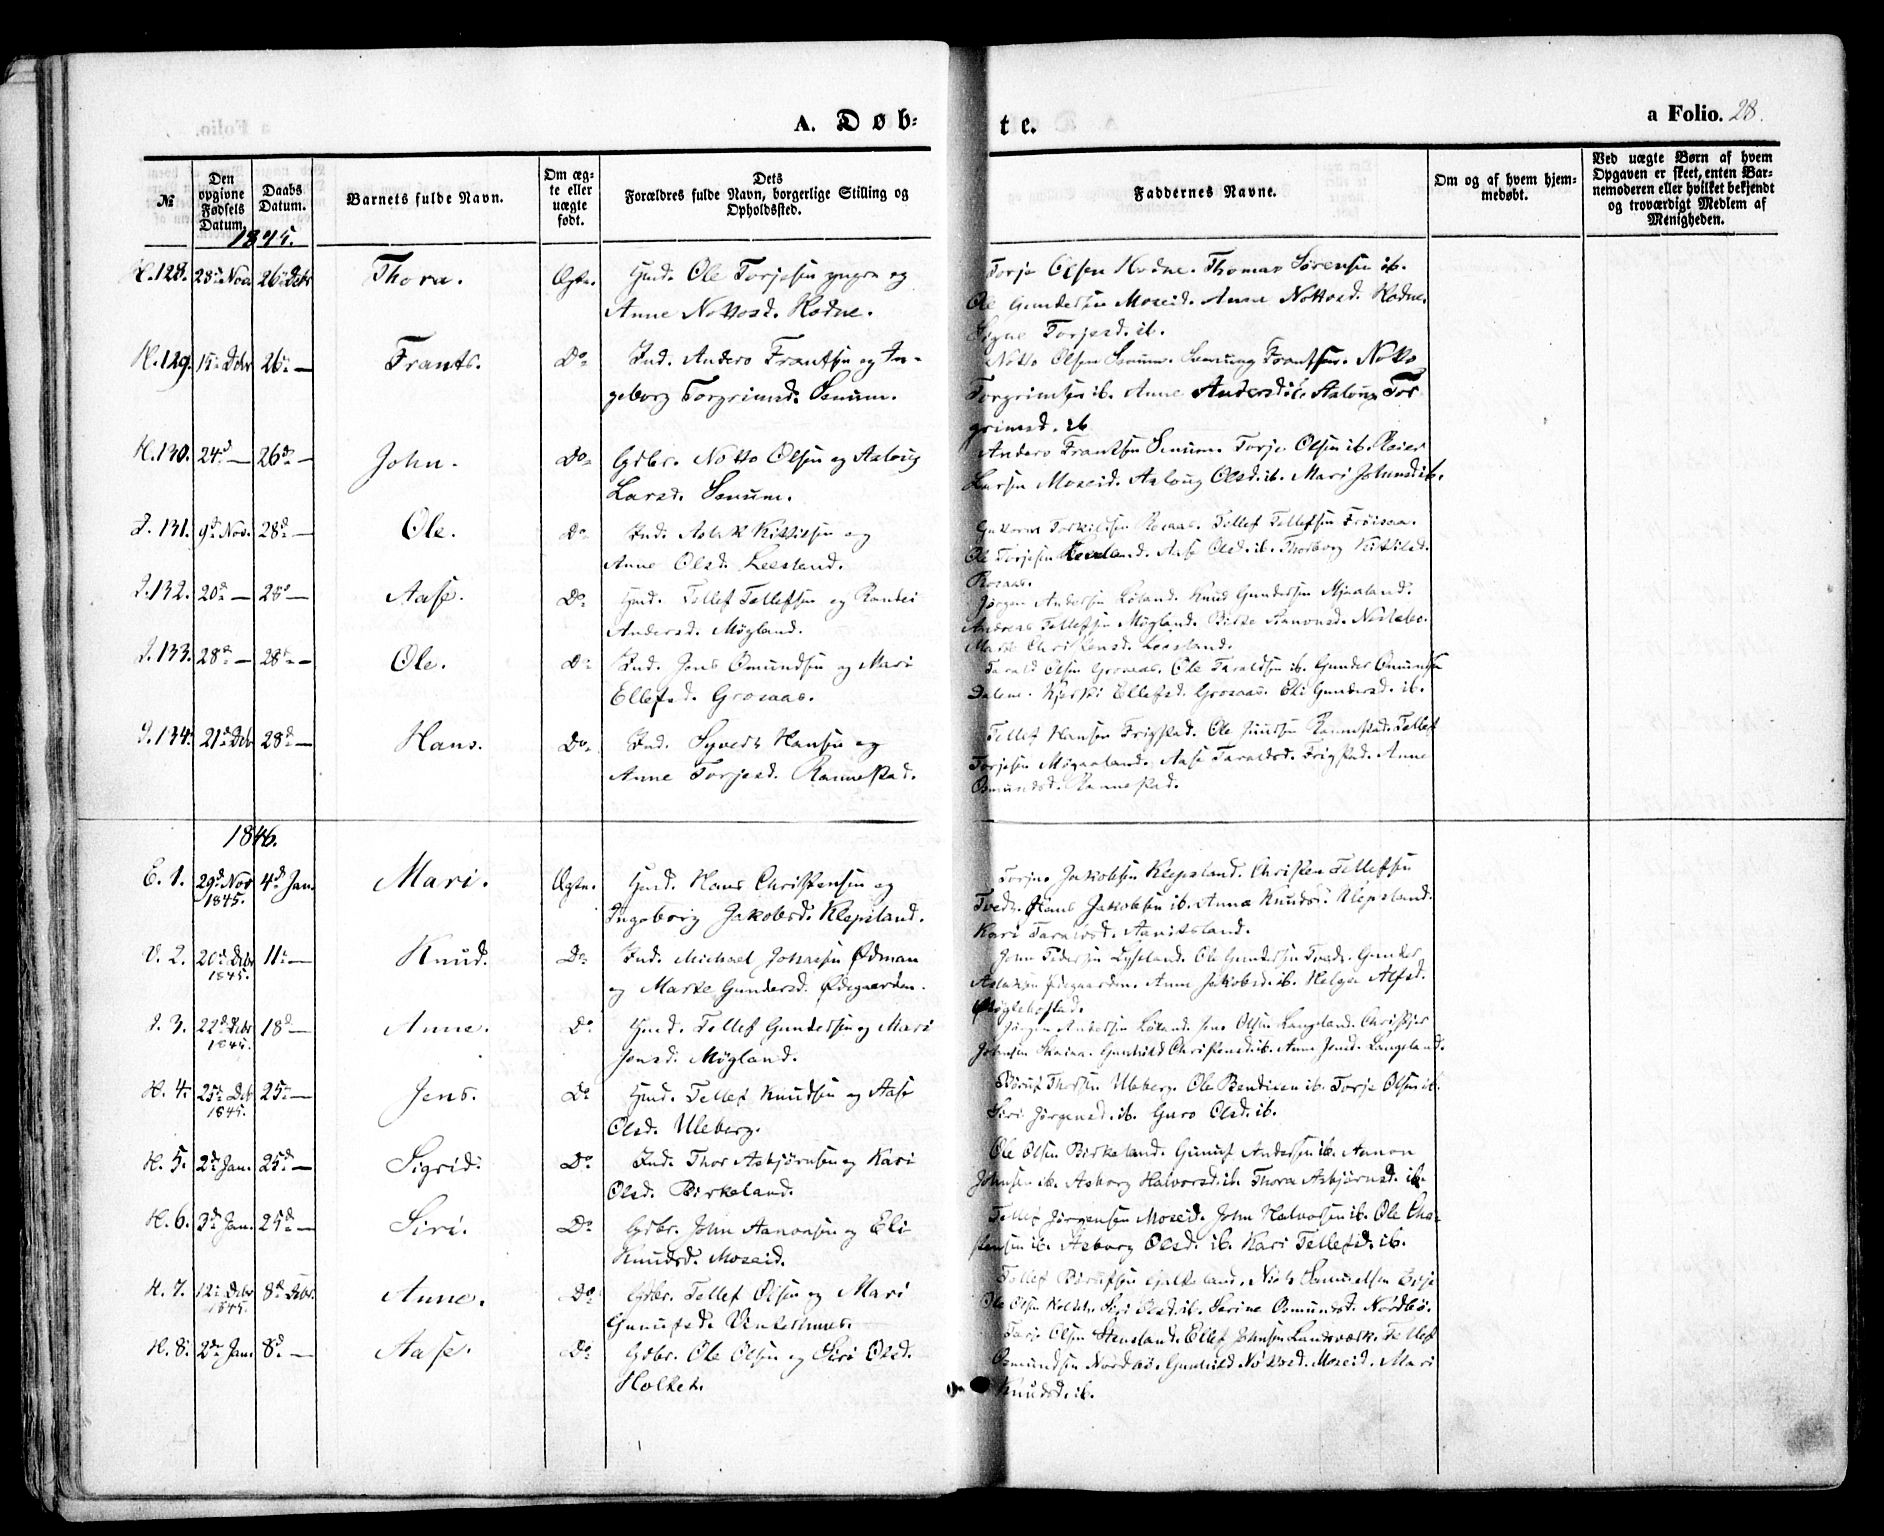 A. Døb-
te.
a Folio. 28.
№
Den opgivne Fødsels Datum.
Daabs Datum.
Barnets fulde Navn.
Om ægte eller uægte født.
Dets Forældres fulde Navn, borgerlige Stilling og Opholdssted.
Faddernes Navne.
Om og af hvem hjemmedøbt.
Ved uægte Børn af hvem Opgaven er skeet, enten Barnemoderen eller hvilket bekjendt og troværdigt Medlem af Menigheden.
1845.
H. 128. 28de Nov. 26de Dcbr Thora. Ægte. Gmd. Ole Torjesen yngre og
Anne Nottosd. Hodne.
Torje Olsen Hodne. Thomas Sørensen ib.
Ole Gundersen Moseid. Anne Nottosd. Hodne.
Signe Torjesd. ib.
H. 129. 15de Dcbr 26de — Frants. Do Ind. Anders Frantsen og In-
geborg Torgrimsd. Senum.
Notto Olsen Senum. Frantsen. Notto
Torgrimsen ib. Anne Andersd. ib. Aaloug Tor-
grimsd. ib
H. 130. 24d — 26de — John. Do Gdbr. Notto Olsen og Aaloug
Larsd. Senum.
Anders Frantsen Senum. Torje Olsen ib. Reier
Larsen Moseid. Aaloug Olsd. ib. Mari Johnsd. ib.
I. 131. 9d Nov. 28d — Ole. Do Ind. Aslak Kittilsen og
Anne Olsd. Leesland.
Guttorm Torkildsen Rosaas. Tellef Tellefsen Frøisaa.
Ole Torjesen. Aase Olsd. ib. Thorborg Kittilsd.
Rosaas.
I. 132. 20d — 28d — Aase. Do Gmd. Tellef Tellefsen og Randei
Andersd. Møgland.
Jørgen Andersen Løland. Knud Gundersen Mjaaland.
Andreas Tellefsen Møgland. Birte Simonsd.
Marte Christensd. Leesland.
I. 133. 28d — 28d — Ole. Do Ind. Jens Omundsen og Mari
Ellefsd. Grosaas.
Tarald Olsen Grosaas. Ole Taraldsen ib. Gunder Omundsen
Dalene. Kjersti Ellefsd. Grosaas. Eli Gundersd. ib.
I. 134. 21d Dcbr 28d — Hans. Do Ind. Syvert Hansen og
Anne Torjesd. Rannestad.
Tellef Hansen Frigstad. Ole Rannestad. Tellef
Torjesen. Aase Taraldsd. Frigstad. Anne
Osmundsd. Rannestad.
1846.
E. 1. 29d Nov 1845. 4d Jan. Mari. Ægte. Gmd. Hans Christensen og
Ingeborg Jakobsd. Klepsland.
Torjus Jakobsen Klepsland. Christen Tellefsen
Tvedt. Hans Jakobsen ib. Anna Knudsd. Klepsland.
Kari Taraldsd. Aavitsland.
V. 2. 20d Dcbr 1845. 11te — Knud. Do Ind. Michael Johnsen Ødman
og Marte Gundersd. Ødegaarden.
John Pedersen. Ole Gundersen Tvedt. Gunder
Aslaksen Ødegaarden. Anne Jakobsd. ib. Helga Alfsd.
Møglebostad.
I. 3. 22d Dcbr 1845. 18d — Anne. Do Gmd. Tellef Gundersen og Mari
Jensd. Møgland.
Jørgen Andersen Løland. Jens Olsen Langeland. Christjer
Johnsen Skaiaa. Gunhild Christensd. ib. Anne Jensd. Langeland.
H. 4. 25de Dcbr 1845. 25de — Jens. Do Gmd. Tellef Knudsen og Aase
Olsd. Uleberg.
Børuf Thorsen Uleberg. Ole Bendixen ib. Torje Olsen ib.
Siri Jørgensd. ib. Guro Olsd. ib.
H. 5. 2de Jan. 25d — Sigrid. Do Ind. Thor Asbjørnsen og Kari
Olsd. Birkeland.
Ole Olsen Birkeland. Gunuf Andersen ib. Aanon
Johnsen ib. Asborg Halvorsd. ib. Thora Asbjørnsd. ib.
H. 6. 3de Jan. 25d — Siri. Do Gdbr. John Aanonsen og Eli
Knudsd. Moseid.
Tellef Jørgensen Moseid. John Halvorsen ib. Ole Cha-
stensen ib. Asborg Olsd. ib. Kari Tellefsd. ib.
H. 7. 12te Dcbr 1845. 8d Febr. Anne. Do Gdbr. Tellef Olsen og Mari
Gunufsd. Vintertun.
Tellef Børufsen. Niels Samuelsen
Ole Olsen Holtet. Siri Olsd. ib. Serine Osmundsd. Nordbø.
H. 8. 2de Jan. 8d — Aase. Do Gdbr. Ole Olsen og Siri Olsd.
Holtet.
Torje Olsen Stensland. Ellef Johnsen Landsværk. Tellef
Osmundsen Nordbø. Gunhild Nottosd. Moseid. Mari
Knudsd. ib.